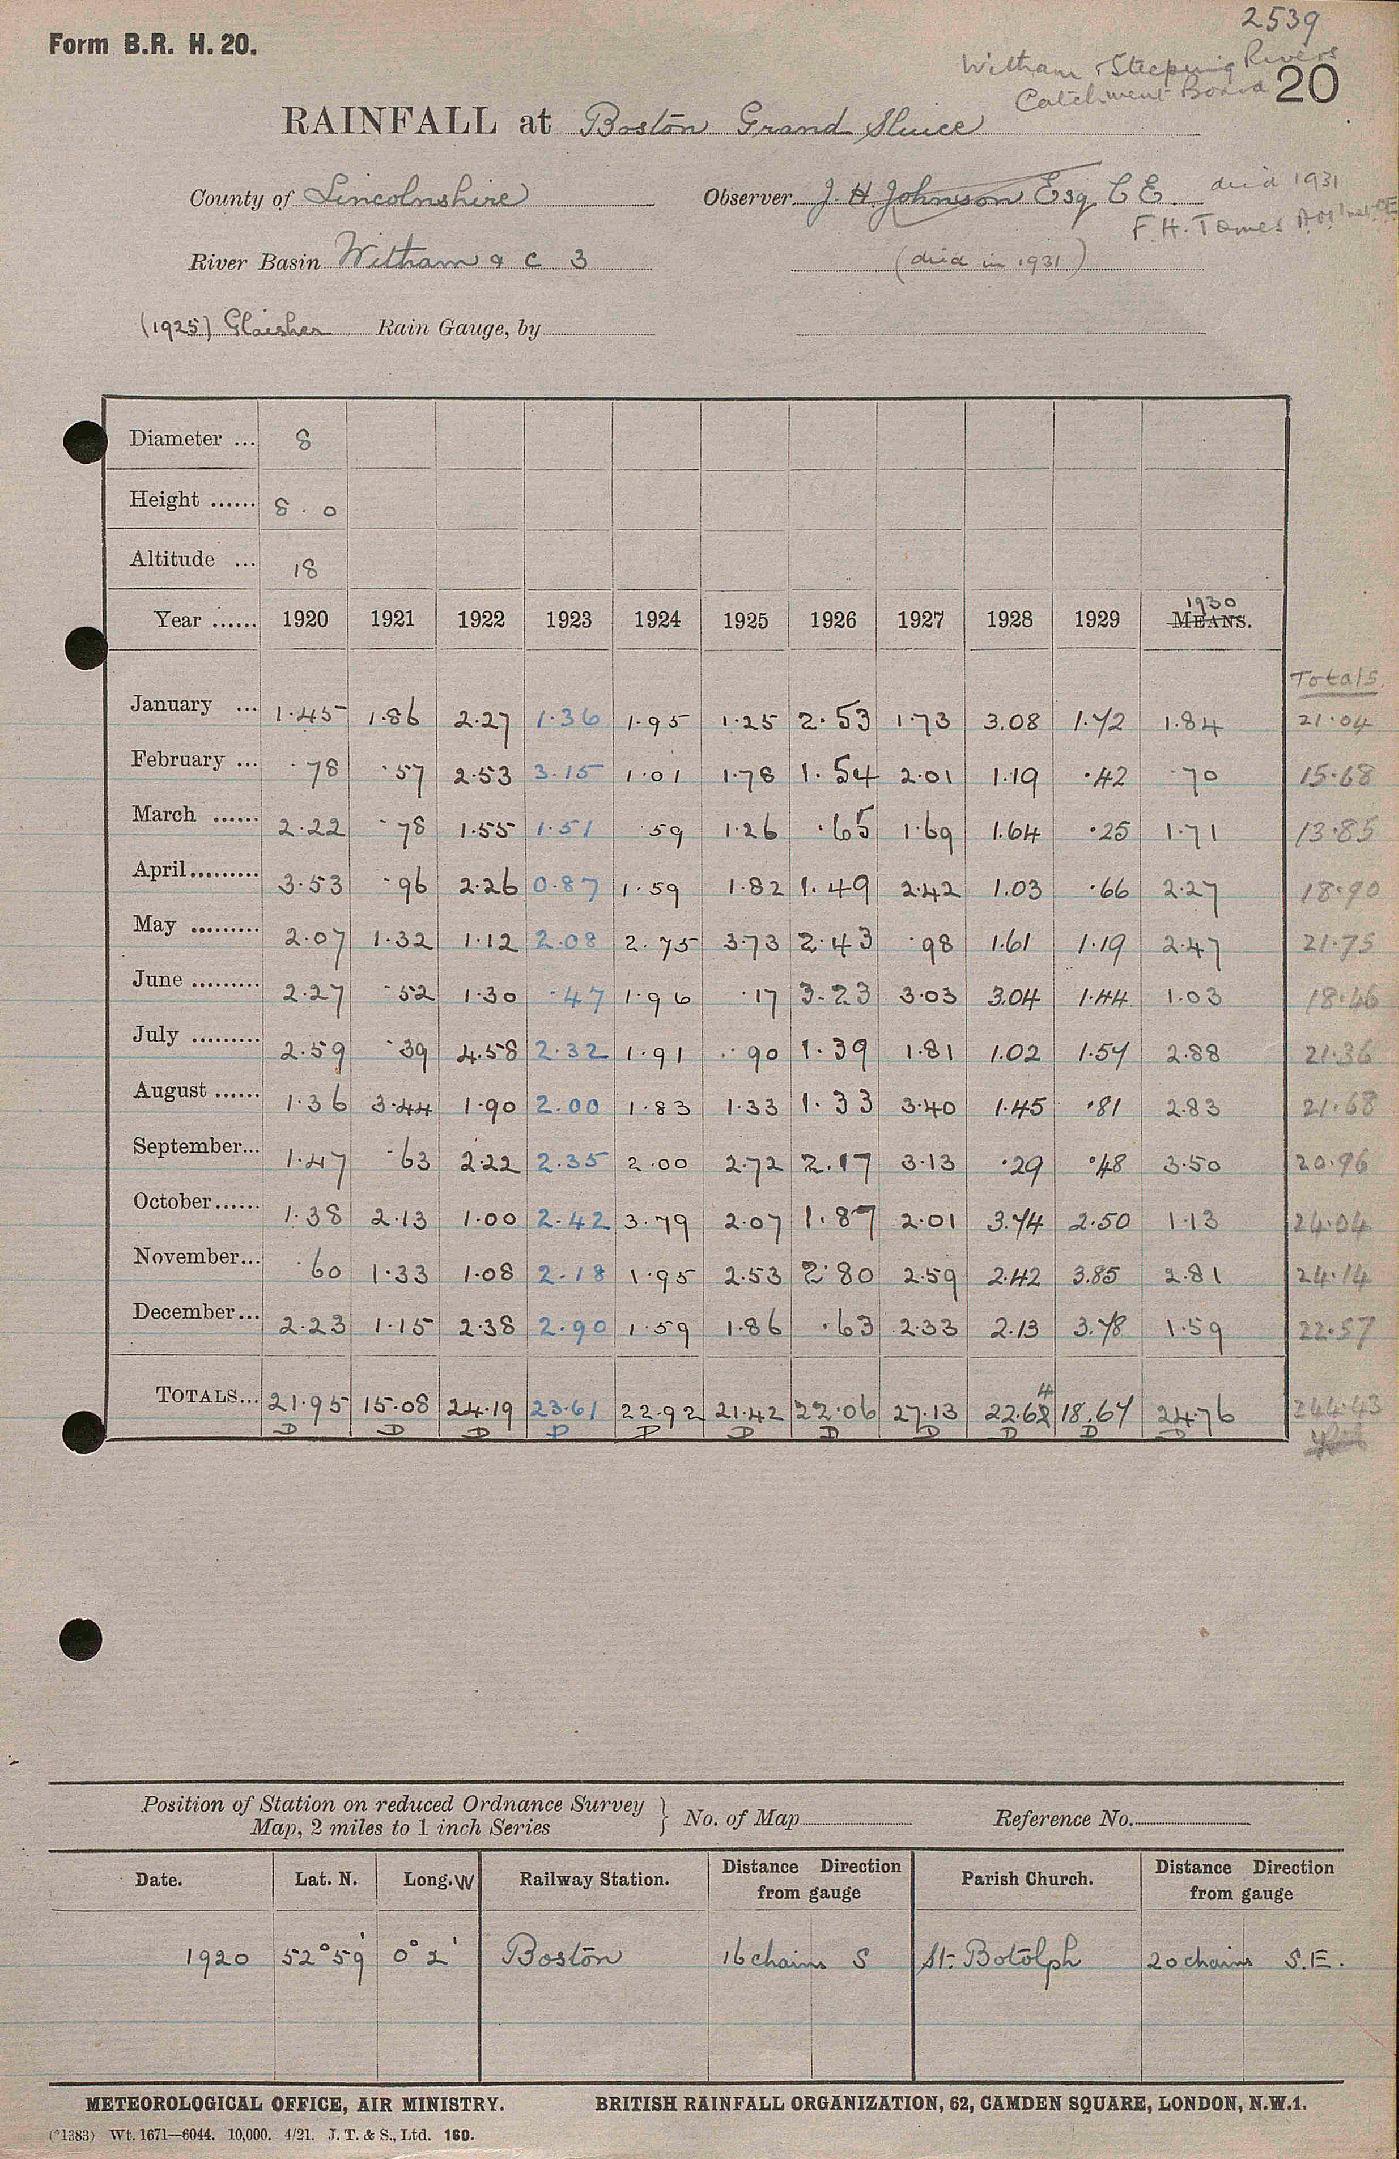 2539
Form B.R. H. 20.
Witham & Steeping Rivers
Catchment Board 20
RAINFALL at Boston Grand Sluice
County of Lincolnshire Observer J. H. Johnson Esq C E. died 1931
F. H. Tomes
River Basin Witham & C 3 (died in 1931)
(1925) Glaisher Rain Gauge, by
Diameter ... 8
Height ...... 8 . 0
Altitude ... 18
Year ...... 1920 1921 1922 1923 1924 1925 1926 1927 1928 1929 1930 MEANS.
Totals
January ... 1.45 1.86 2.27 1.36 1.95 1.25 2.53 1.73 3.08 1.72 1.84 21.04
February ... .78 .57 2.53 3.15 1.01 1.78 1.54 2.01 1.19 .42 .70 15.68
March ...... 2.22 .78 1.55 1.51 .59 1.26 .65 1.69 1.64 .25 1.71 13.85
April......... 3.53 .96 2.26 0.87 1.59 1.82 1.49 2.42 1.03 .66 2.27 18.90
May ......... 2.07 1.32 1.12 2.08 2.75 3.73 2.43 .98 1.61 1.19 2.47 21.75
June ......... 2.27 .52 1.30 .47 1.96 .17 3.23 3.03 3.04 1.44 1.03 18.46
July ......... 2.59 .39 4.58 2.32 1.91 .90 1.39 1.81 1.02 1.57 2.88 21.36
August ...... 1.36 3.44 1.90 2.00 1.83 1.33 1.33 3.40 1.45 .81 2.83 21.68
September... 1.47 .63 2.22 2.35 2.00 2.72 2.17 3.13 .29 .48 3.50 20.96
October...... 1.38 2.13 1.00 2.42 3.79 2.07 1.87 2.01 3.74 2.50 1.13 24.04
November... .60 1.33 1.08 2.18 1.95 2.53 2.80 2.59 2.42 3.85 2.81 24.14
December... 2.23 1.15 2.38 2.90 1.59 1.86 .63 2.33 2.13 3.78 1.59 22.57
4
TOTALS... 21.95 15.08 24.19 23.61 22.92 21.42 22.06 27.13 22.62 18.67 24.76 244.43
D D D D D D D D D D D
Position of Station on reduced Ordnance Survey
Map, 2 miles to 1 inch Series } No. of Map Reference No.
Date. Lat. N. Long. W Railway Station. Distance Direction from gauge Parish Church. Distance Direction from gauge
1920 52°59' 0°2' Boston 16 chains S St. Botolph 20 chains S.E.
METEOROLOGICAL OFFICE, AIR MINISTRY. BRITISH RAINFALL ORGANIZATION, 62, CAMDEN SQUARE, LONDON, N.W.1.
(*1383) Wt. 1671—6044. 10,000. 4/21. J. T. & S., Ltd. 160.